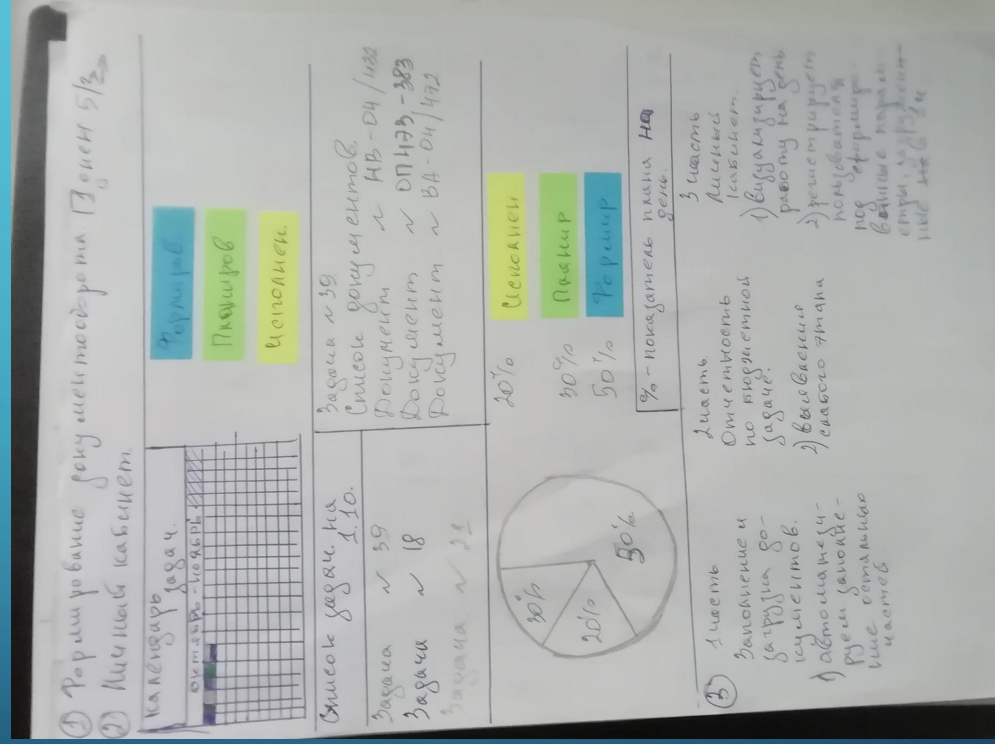 ① Формирование документооборота
② Личный кабинет
Календарь задач.
октябрь-ноябрь
Формиров
Планиров
Исполнен.
Список задач на
1.10.
Задача ~ 39
Задача ~ 18
Задача ~ 21
Задача ~ 39
Список документов.
Документ ~ НВ-04/422
Документ ~ ОП473,-383
Документ ~ ВА-04/472
30%
20%
50%
20% Исполнен
30% Планир
50% Формир
% - показатель плана на
день.
③
1 часть
Заполнение и
загрузка до-
кументов.
1) автоматизи-
руем заполне-
ние остальных
частей
2 часть
Отчетность
по бюджетной
задаче.
2) выявления
слабого этапа
3 часть
Личный
кабинет.
1) визуализирует
работу на день
2) регистрирует
пользователя
под сформиро-
ванные парам